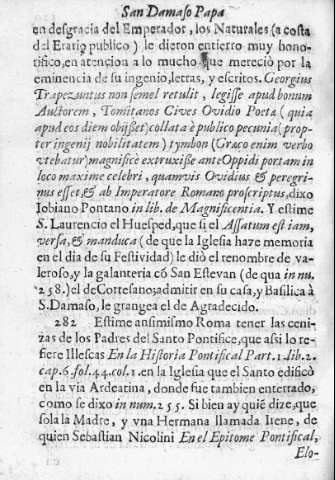 San Damaso Papa
en desgracia del Emperador, los Naturales (a costa
del Erario publico) le dieron entierro muy hono-
rifico, en atencion a lo mucho que mereciò por la
eminencia de su ingenio, letras, y escritos. Georgius
Trapezuntus non semel retulit, legisse apud bonum
Auctorem, Tomitanos Cives Ovidio Poetæ (quia
apud eos diem obijsset) collata è publico pecunia (prop-
ter ingenij nobilitatem) tymbon (Græco enim verbo
vtebatur) magnificè extruxisse ante Oppidi portam in
loco maxime celebri, quamvis Ovidius & peregri-
nus esset, & ab Imperatore Romano proscriptus, dixo
Iobiano Pontano in lib. de Magnificentia. Y estime
S. Laurencio el Huesped, que si el Assatum est iam,
versa, & manduca (de que la Iglesia haze memoria
en el dia de su Festividad) le diò el renombre de va-
leroso, y la galanteria cõ San Estevan (de qua in nu.
258.) el de Cortesano, admitir en su casa, y Basilica à
S. Damaso, le grangea el de Agradecido.
282 Estime ansimismo Roma tener las ceni-
zas de los Padres del Santo Pontifice, que assi lo re-
fiere Illescas En la Historia Pontifical Part. 1. lib. 2.
cap. 6. fol. 44. col. 1. en la Iglesia que el Santo edificò
en la via Ardeatina, donde fue tambien enterrado,
como se dixo in num. 255. Si bien ay quiē dize, que
sola la Madre, y vna Hermana llamada Irene, de
quien Sebastian Nicolini En el Epitome Pontifical,
Elo-